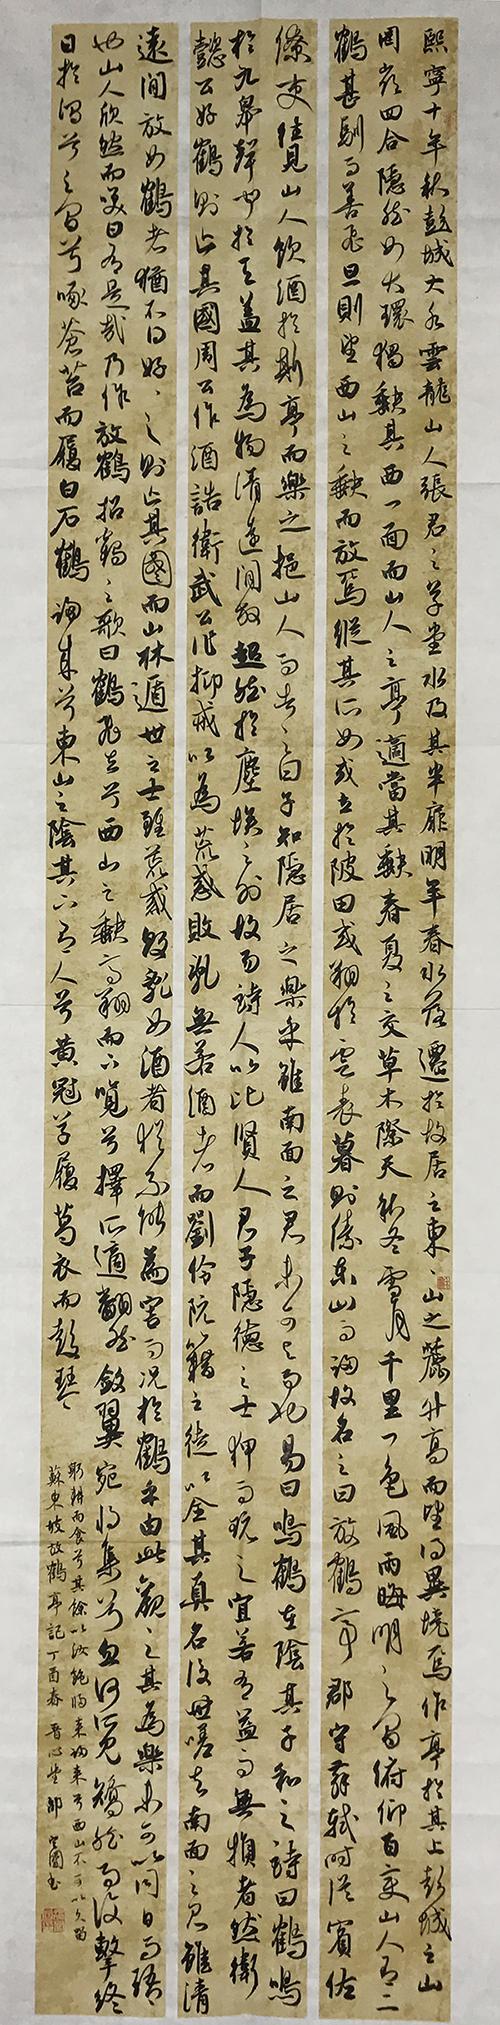 熙寧十年秋彭城大水雲龍山人張君之草堂水及其半扉明年春水落遷於故居之東、山之麓升高而望得異境焉作亭於其上彭城之山
岡嶺四合隱然如大環獨缺其西一面而山人之亭適當其缺春夏之交草木際天秋冬雪月千里一色風雨晦明之間俯仰百變山人有二
鶴甚馴而善飛旦則望西山之缺而放焉縱其所如或立於陂田或翔於雲表暮則傃東山而歸故名之曰放鶴亭郡守蘇軾時從賓佐
僚吏往見山人飲酒於斯亭而樂之挹山人而告之曰子知隱居之樂乎雖南面之君未可與易也易曰鳴鶴在陰其子和之詩曰鶴鳴
於九皋聲聞於天蓋其為物清遠閒放超然於塵埃之外故易詩人以比賢人君子隱德之士狎而玩之宜若有益而無損者然衛
懿公好鶴則亡其國周公作酒誥衛武公作抑戒以為荒惑敗亂無若酒者而劉伶阮籍之徒以全其真名後世嗟夫南面之君雖清
遠閒放如鶴者猶不得好、之則亡其國而山林遁世之士雖荒惑敗亂如酒者猶不能為害而況於鶴乎由此觀之其為樂未可以同日而語
也山人欣然而笑曰有是哉乃作放鶴招鶴之歌曰鶴飛去兮西山之缺高翔而下覽兮擇所適翻然斂翼宛將集兮忽何所見矯然而復擊終
日於澗谷之間兮啄蒼苔而履白石鶴歸來兮東山之陰其下有人兮黃冠草履葛衣而鼓琴
躬耕而食兮其餘以汝飽歸來歸來兮西山不可以久留
蘇東坡放鶴亭記丁酉春晉心堂 國書